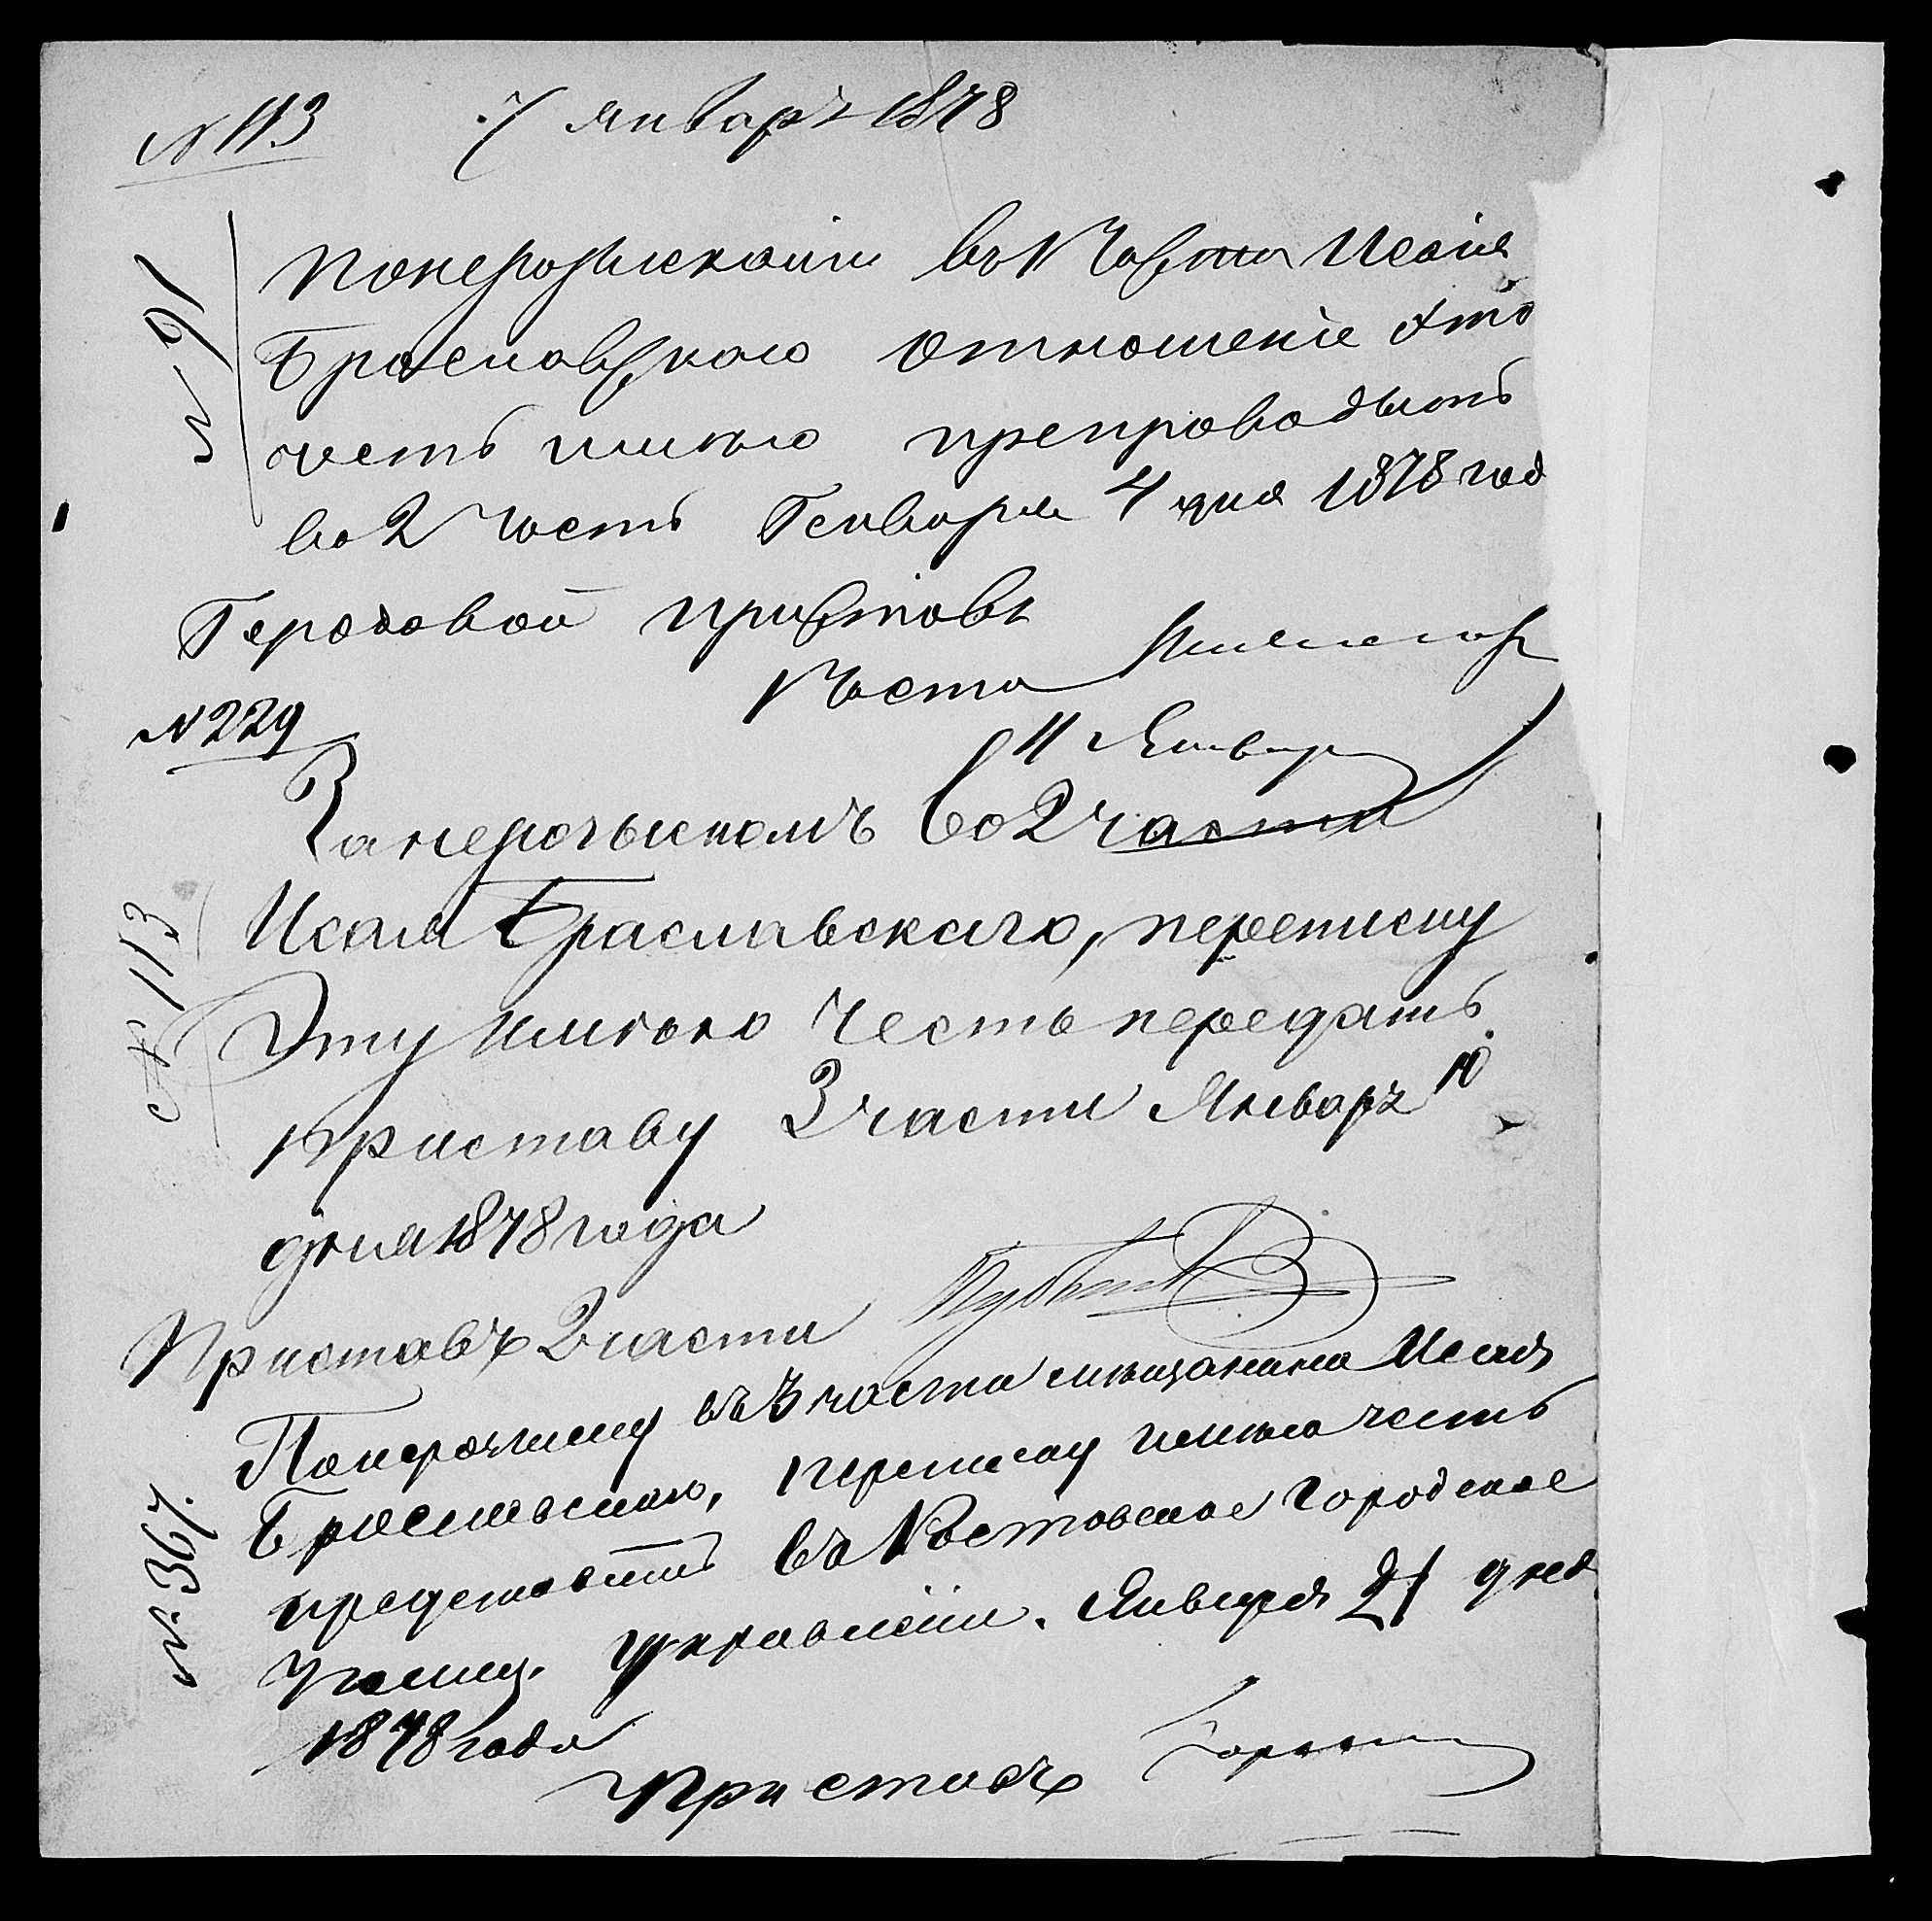 N 113 7 январъ 1878
N 91
По нерозысканiи въ 1 Части Исаiя
Браславскаго отношенiе это
честь имѣю препроводить
во 2 часть Генваря 4 дня 1878 год
Городовой приставъ
1 части
N 229
11 Январ
За нерозыскомъ во 2 части
Исаия Браславскаго, переписку
Эту имѣю честь передать
приставу 3 части Январъ 10
дня 1878 года
N 113
Приставъ 2 части
По нерозыску въ 3 части мѣщанина Исая
Браславскаго, переписку имѣю честь
представить въ Ростовское городское
Полиц. управленiи. Января 21 дня
1878 года
N. 367.
Приставъ